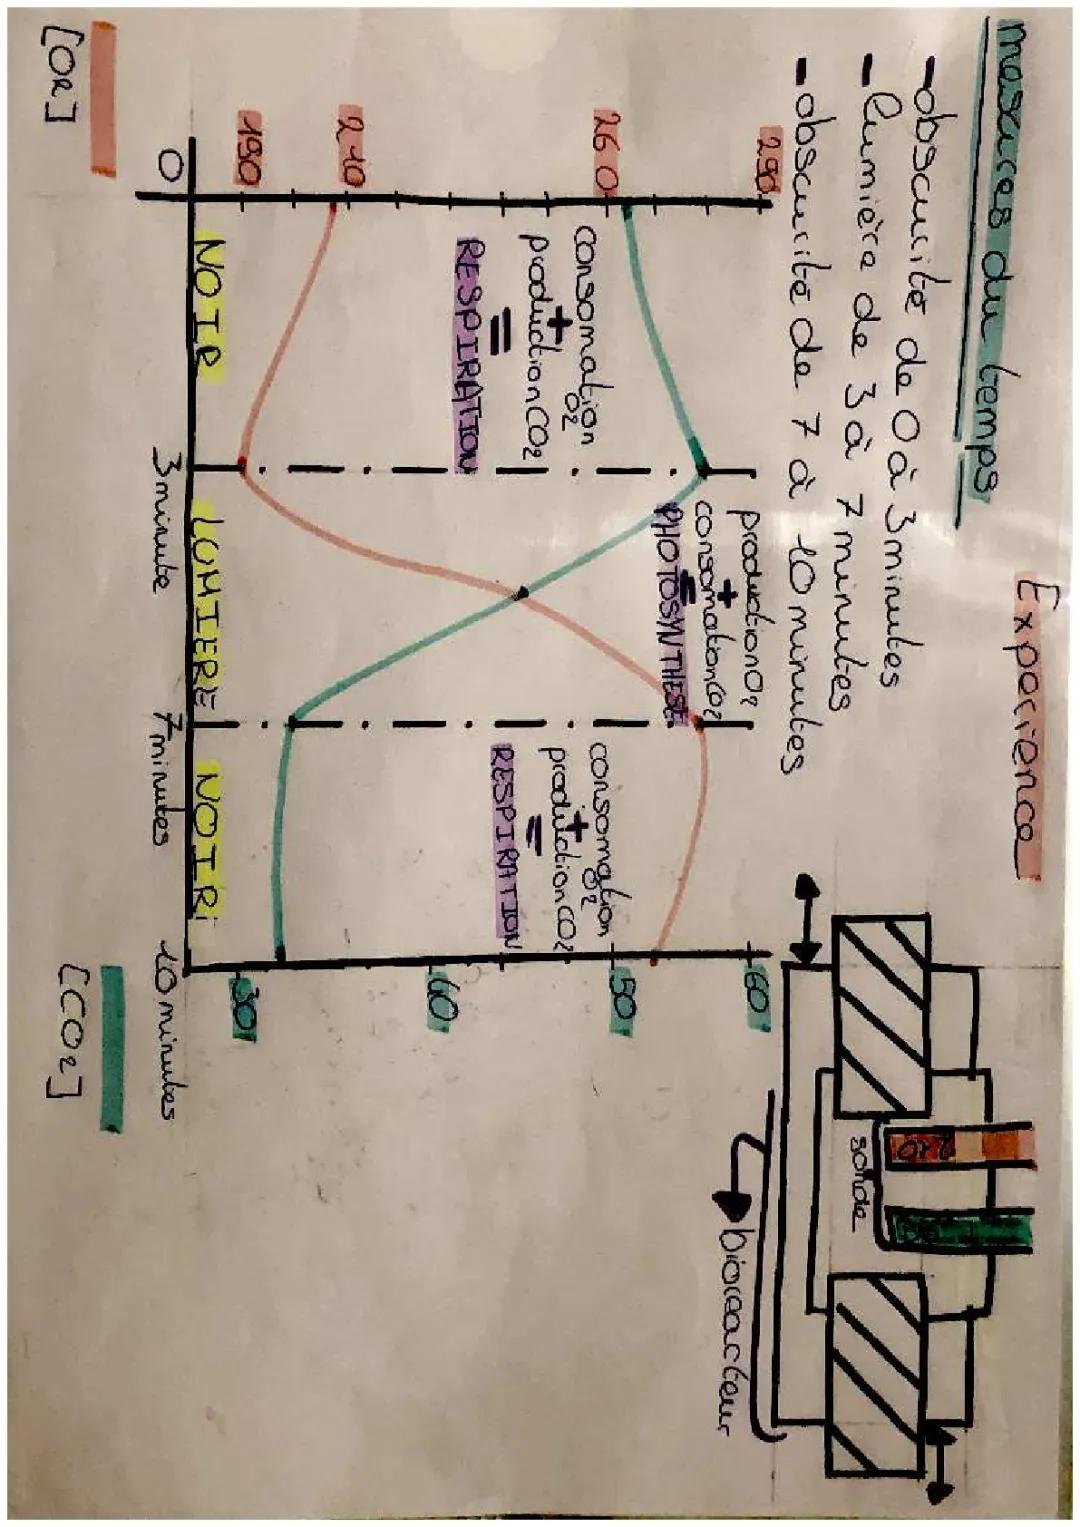 Expérience
mesures du temps
- obscurité de 0 à 3 minutes
- lumière de 3 à 7 minutes
- obscurité de 7 à 10 minutes
290
260
210
190
0
consomation
O2
+
production CO2
=
RESPIRATION
NOIR
production O2
+
consomation CO2
=
PHOTOSYNTHESE
LUMIERE
consomation
O2
+
production CO2
=
RESPIRATION
NOIR
3 minute
7 minutes
10 minutes
60
50
40
30
[O2]
[CO2]
sonde
bioreacteur